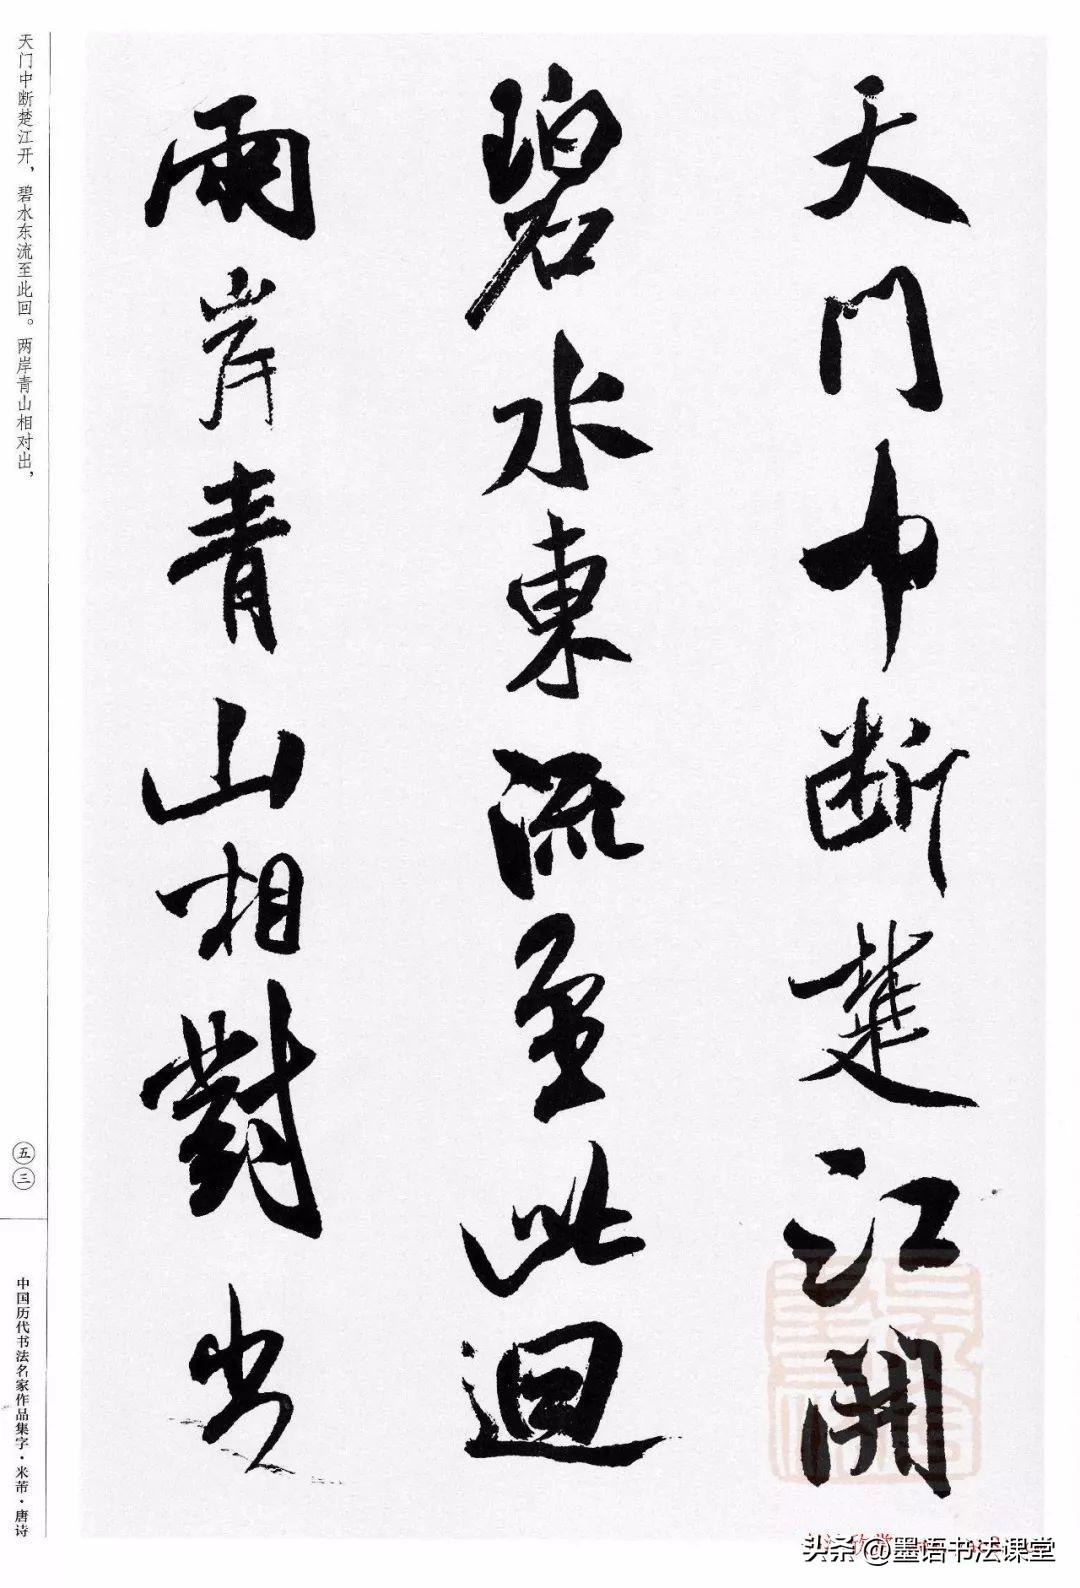 天門中斷楚江開
碧水東流至此迴
兩岸青山相對出
天门中断楚江开，碧水东流至此回。两岸青山相对出，
五三
中国历代书法名家作品集字·米芾·唐诗
头条@墨语书法课堂